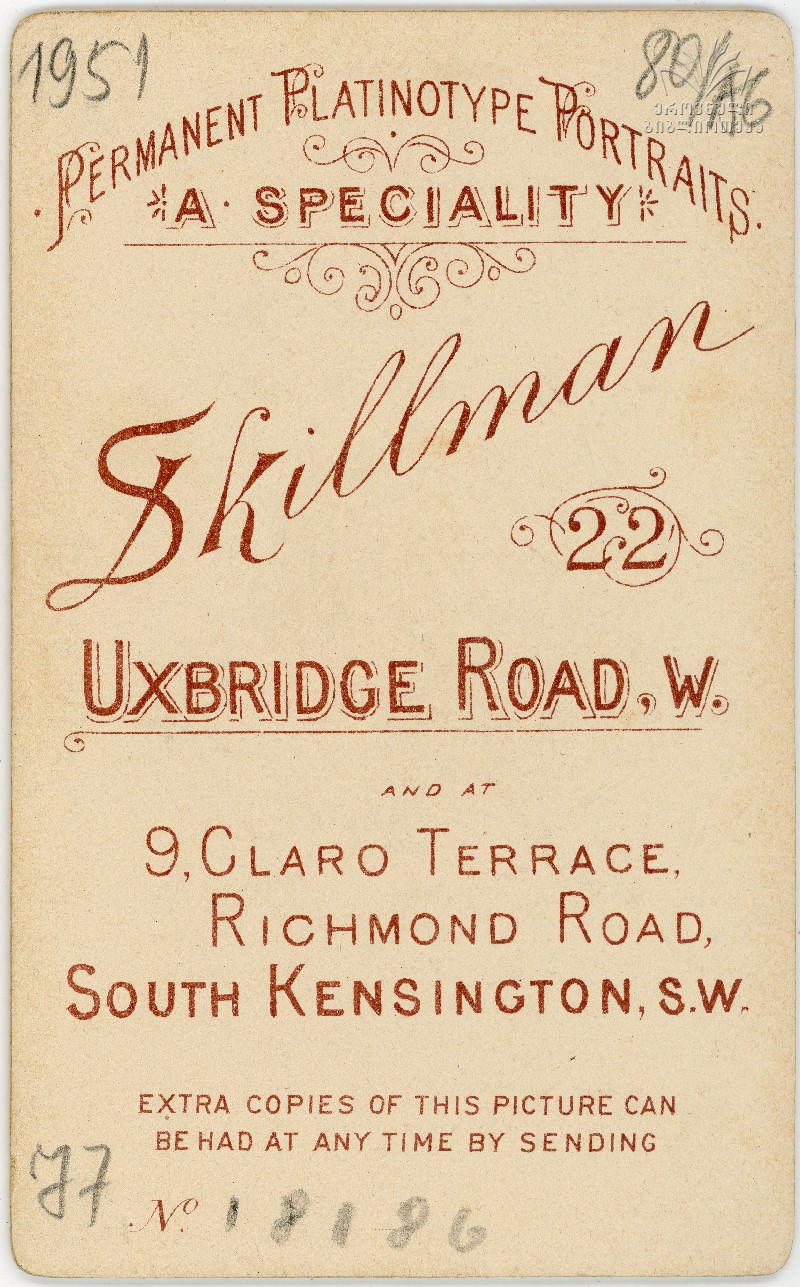 1951
80/116
ეროვნული
ბიბლიოთეკა
PERMANENT PLATINOTYPE PORTRAITS.
A SPECIALITY
Skillman
22
UXBRIDGE ROAD, W.
AND AT
9, CLARO TERRACE,
RICHMOND ROAD,
SOUTH KENSINGTON, S.W.
EXTRA COPIES OF THIS PICTURE CAN
BE HAD AT ANY TIME BY SENDING
77
No. 18186